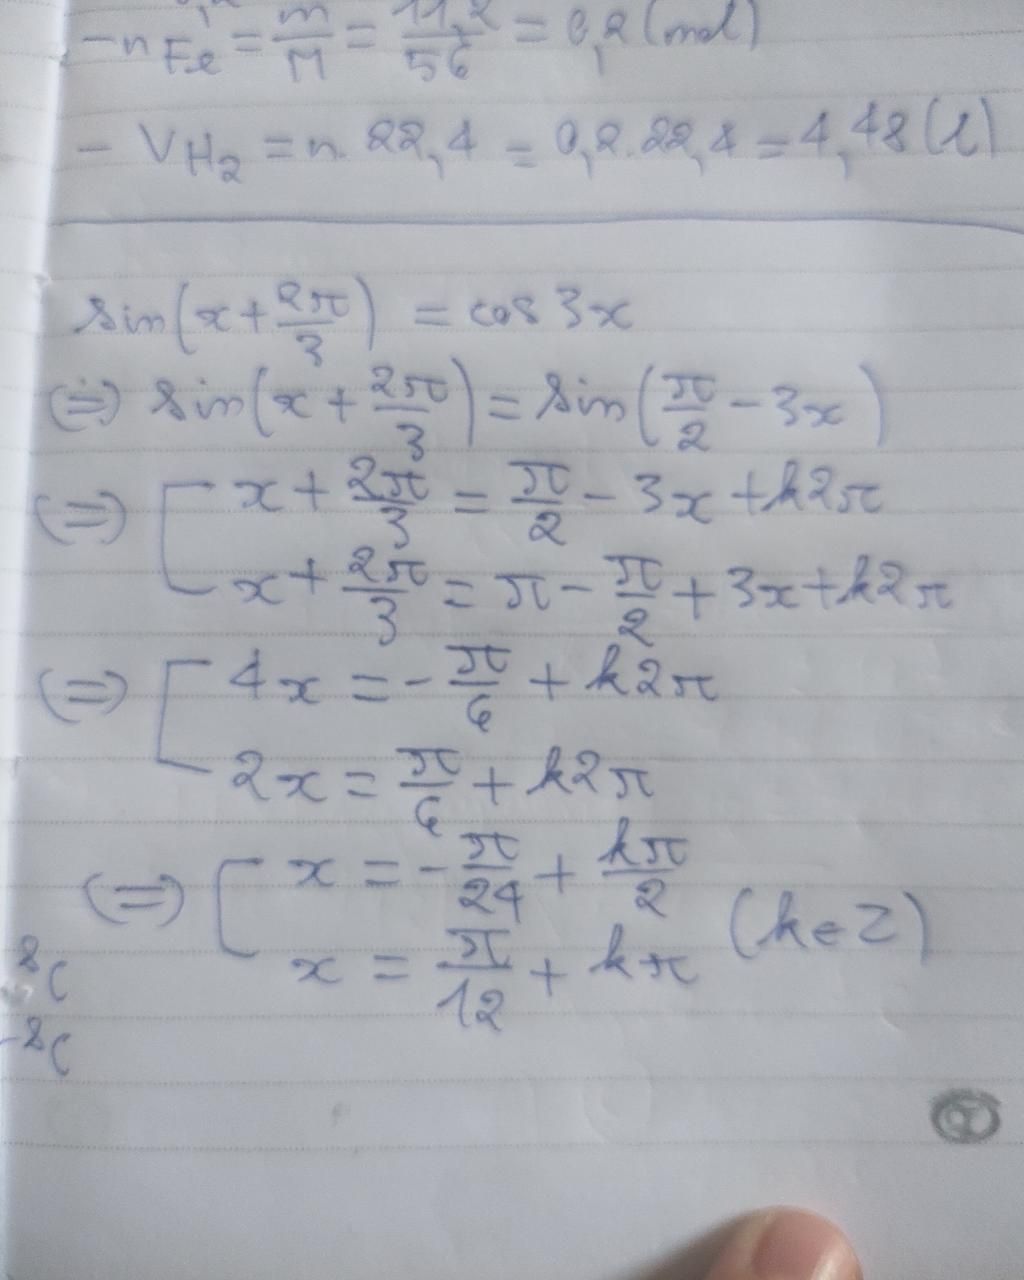 - n Fe = m/M = 11,2/56 = 0,2 (mol)
- V H₂ = n. 22,4 = 0,2.22,4 = 4,48 (l)
sin(x + 2π/3) = cos 3x
(=) sin(x + 2π/3) = sin(π/2 - 3x)
(=) [ x + 2π/3 = π/2 - 3x + k2π
x + 2π/3 = π - π/2 + 3x + k2π
(=) [ 4x = -π/6 + k2π
2x = π/6 + k2π
(=) [ x = -π/24 + kπ/2
x = π/12 + kπ (k∈Z)